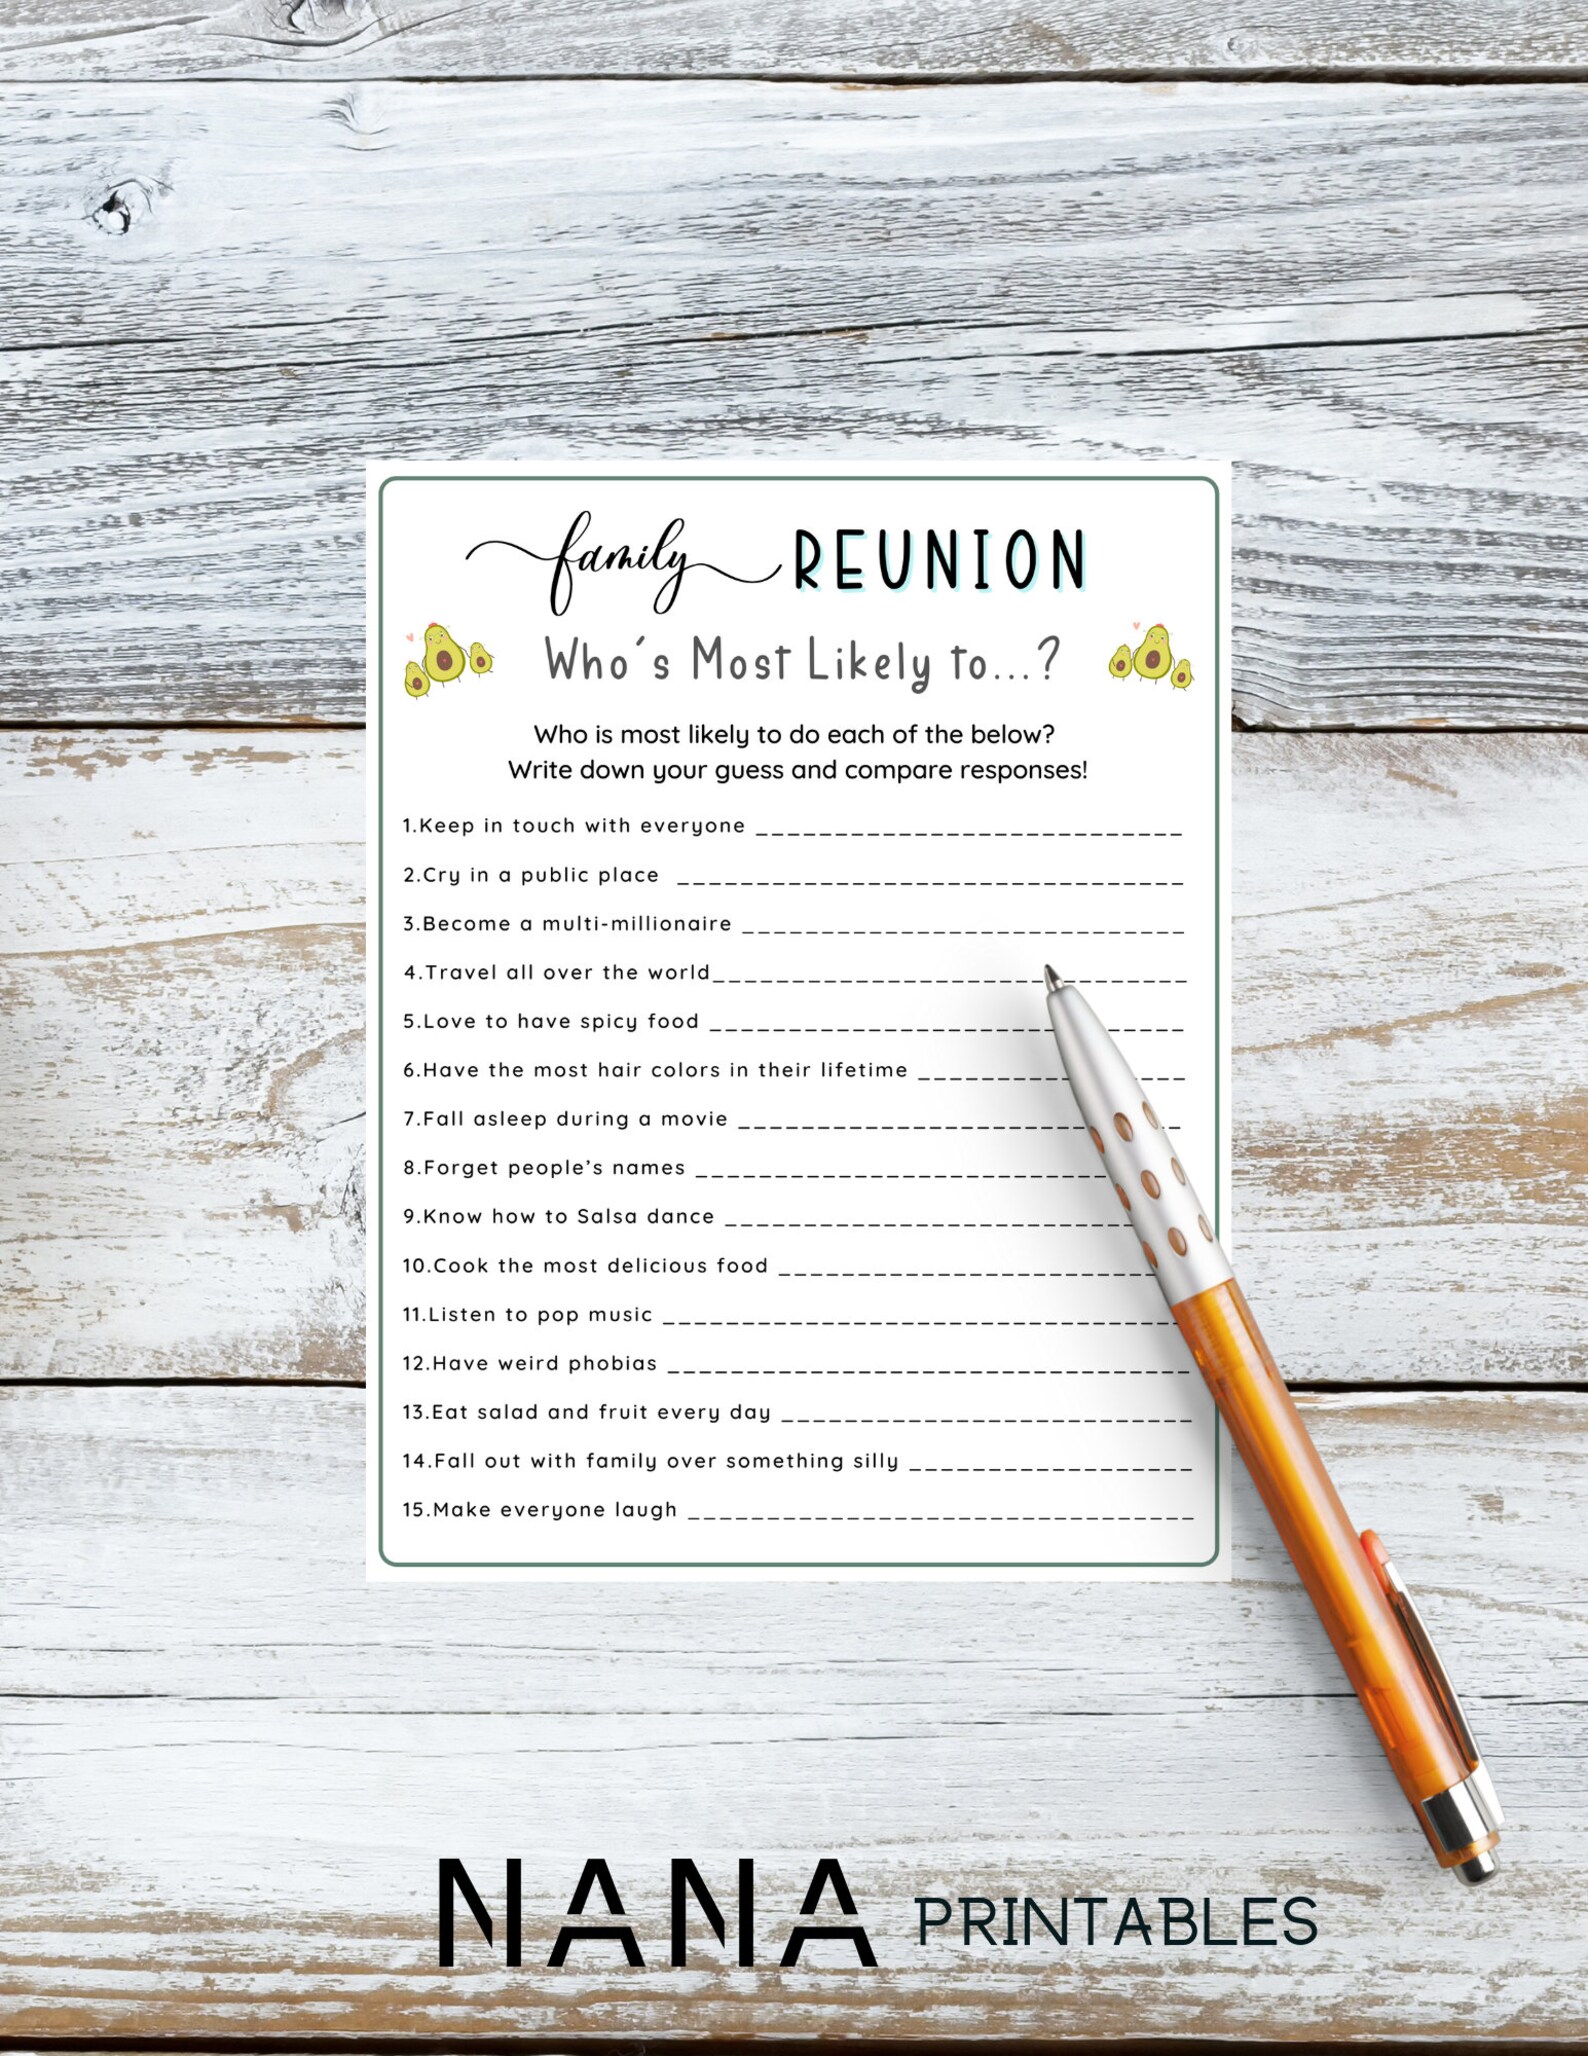 family REUNION
Who's Most Likely to...?
Who is most likely to do each of the below?
Write down your guess and compare responses!
1.Keep in touch with everyone ___________________________
2.Cry in a public place ________________________________
3.Become a multi-millionaire ____________________________
4.Travel all over the world______________________________
5.Love to have spicy food ______________________________
6.Have the most hair colors in their lifetime _________________
7.Fall asleep during a movie ____________________________
8.Forget people’s names __________________________
9.Know how to Salsa dance __________________________
10.Cook the most delicious food ________________________
11.Listen to pop music _________________________________
12.Have weird phobias _________________________________
13.Eat salad and fruit every day __________________________
14.Fall out with family over something silly __________________
15.Make everyone laugh ________________________________
NANA PRINTABLES